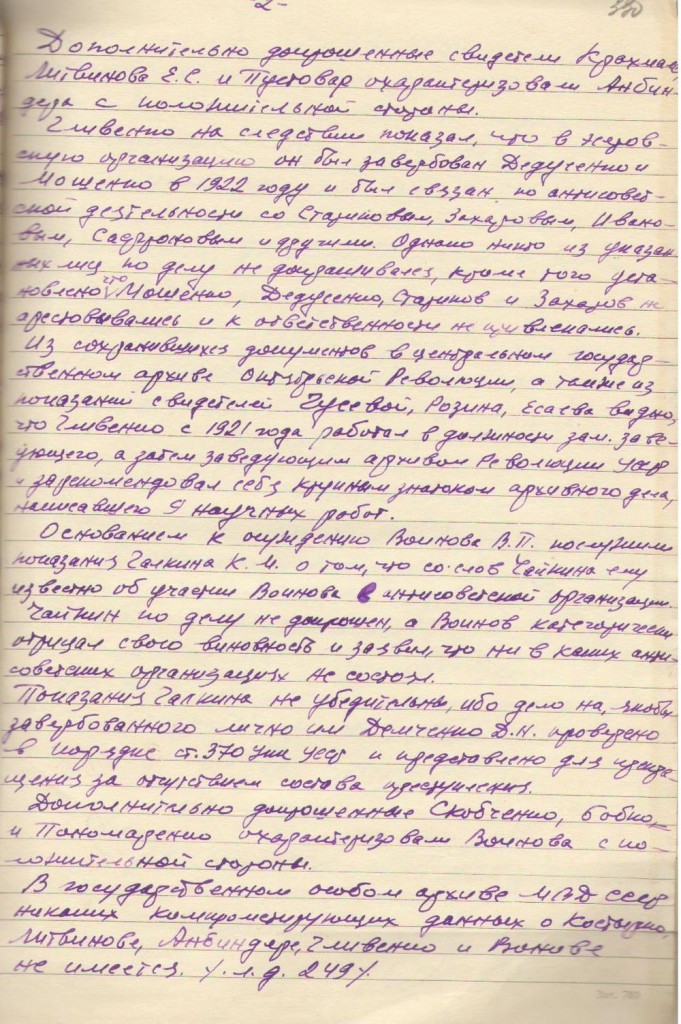 -2-
330
Дополнительно допрошенные свидетели Крахмал
Литвинова Е.С. и Пустовар охарактеризовали Анбин-
дера с положительной стороны.
Гливенко на следствии показал, что в эсеров-
скую организацию он был завербован Дедусенко и
Мошенко в 1922 году и был связан по антисовет-
ской деятельности со Стариковым, Захаровым, Ивано-
вым, Сафроновым и другими. Однако никто из указан
ных лиц по делу не допрашивался, кроме того уста-
новлено что Мошенко, Дедусенко, Стариков и Захаров не
арестовывались и к ответственности не привлекались.
Из сохранившихся документов в центральном государ-
ственном архиве Октябрьской Революции, а также из
показаний свидетелей Гусевой, Розина, Есаева видно,
что Гливенко с 1921 года работал в должности зам. заве-
дующего, а затем заведующим архивом Революции УССР
и зарекомендовал себя крупным знатоком архивного дела,
написавшего 9 научных работ.
Основанием к осуждению Воинова В.П. послужили
показания Галкина К.М. о том, что со слов Чайкина ему
известно об участии Воинова в антисоветской организации.
Чайкин по делу не допрошен, а Воинов категорически
отрицал свою виновность и заявил, что ни в каких анти-
советских организациях не состоял.
Показания Галкина не убедительны, ибо дело на, якобы
завербованного лично им Демченко Д.Н. проверено
в порядке ст. 370 УПК УССР и представлено для прекра-
щения за отсутствием состава преступления.
Дополнительно допрошенные Скобченко, Бобко,
и Пономаренко охарактеризовали Воинова с по-
ложительной стороны.
В государственном особом архиве МВД СССР
никаких компрометирующих данных о Костырко,
Литвинове, Анбиндере, Гливенко и Воинове
не имеется. /л.д. 249/.